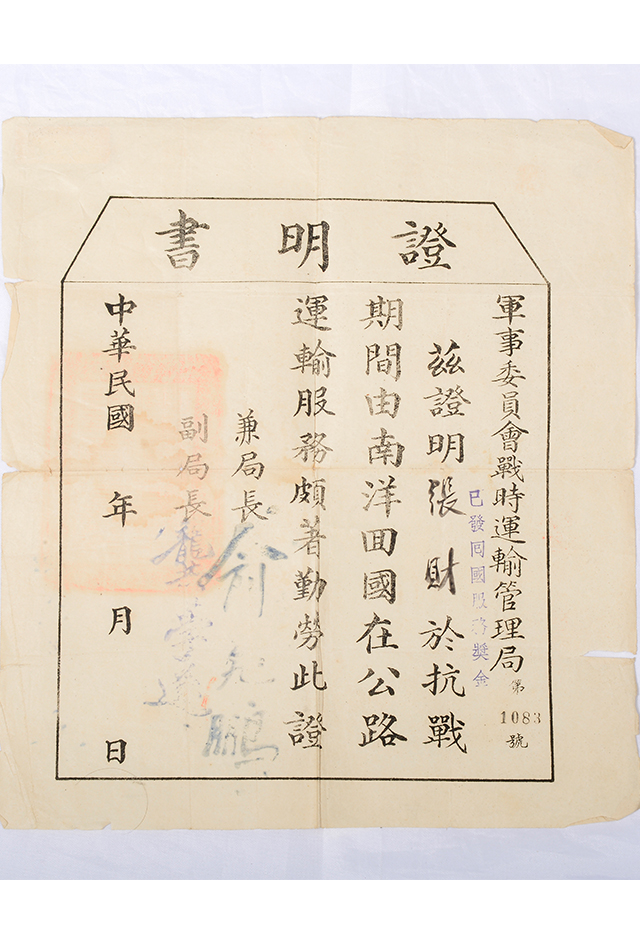 證明書
軍事委員會戰時運輸管理局
第
1083
號
已發回國服務獎金
茲證明張財於抗戰
期間由南洋回國在公路
運輸服務頗著勤勞此證
兼局長俞飛鵬
副局長龔學遂
中華民國 年 月 日